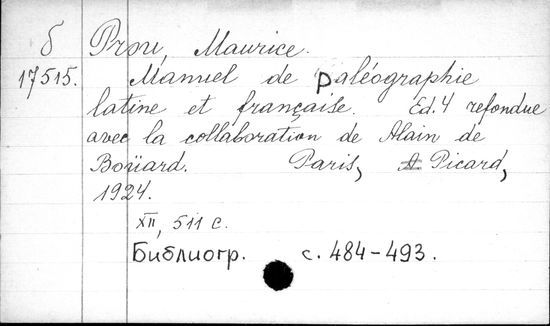 б Prou, Maurice.
17515. Manuel de paléographie
latine et française. Ed. 4 refondue
avec la collaboration de Alain de
Boüard. Paris, Picard,
1924.
XII, 511 с.
Библиогр. с. 484-493.